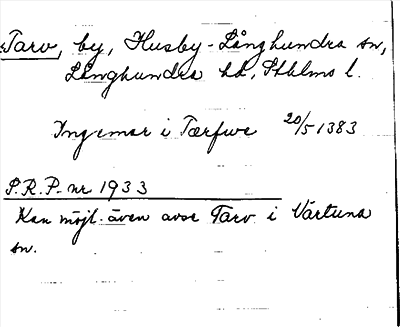 Tarv, by, Husby-Långhundra sn,
Långhundra hd, Sthlms l.
Ingemar i Tærfwe 20/5 1383
P.R.P. nr 1933
Kan möjl. även avse Tarv i Vårtuna
sn.